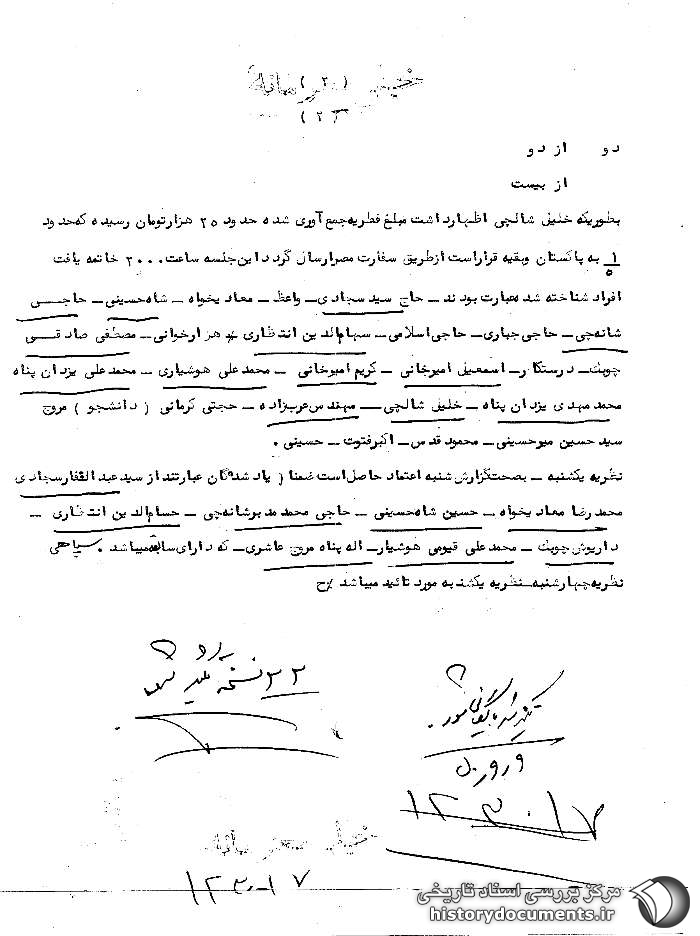 خیلی محرمانه
(۲)
دو از دو
از بیست
بطوریکه خلیل شالچی اظهار داشت مبلغ فطریه جمع آوری شده حدود ۲۵ هزار تومان رسیده که حدود
۱/۵ به پاکستان وبقیه قرار است از طریق سفارت مصر ارسال گردد این جلسه ساعت ۲۰۰۰ خاتمه یافت
افراد شناخته شده عبارت بودند ــ حاج سید سجادی ــ واعظ ــ معادیخواه ــ شاه حسینی ــ حاجی
شانه چی ــ حاجی جباری ــ حاجی اسلامی ــ سهام الدین انتظاری ــ هزارخوانی ــ مصطفی صادقی
چوبک ــ درستکار ــ اسمعیل امیرخانی ــ کریم امیرخانی ــ محمد علی هوشیاری ــ محمد علی یزدان پناه
محمد مهدی یزدان پناه ــ خلیل شالچی ــ مهندس عربزاده ــ حجتی کرمانی ( دانشجو ) مروج
سید حسین میرحسینی ــ محمود قدس ــ اکبر فتوت ــ حسینی .
نظریه یکشنبه ــ بصحت گزارش شنبه اعتماد حاصل است ضمنا ( یاد شدگان عبارتند از سید عبدالغفار سجادی
محمد رضا معادیخواه ــ حسین شاه حسینی ــ حاجی محمد مدیر شانه چی ــ حسام الدین انتظاری ــ
داریوش چوبک ــ محمد علی قیومی هوشیار ــ اله پناه مروج عاشری ــ که دارای سابقه میباشد . سپاهی
نظریه چهارشنبه ــ نظریه یکشنبه مورد تائید میباشد ح
۲۲ نسخه
۱۲۳۰۱۷
خیلی محرمانه
۱۲۳۰۱۷
مرکز بررسی اسناد تاریخی
historydocuments.ir